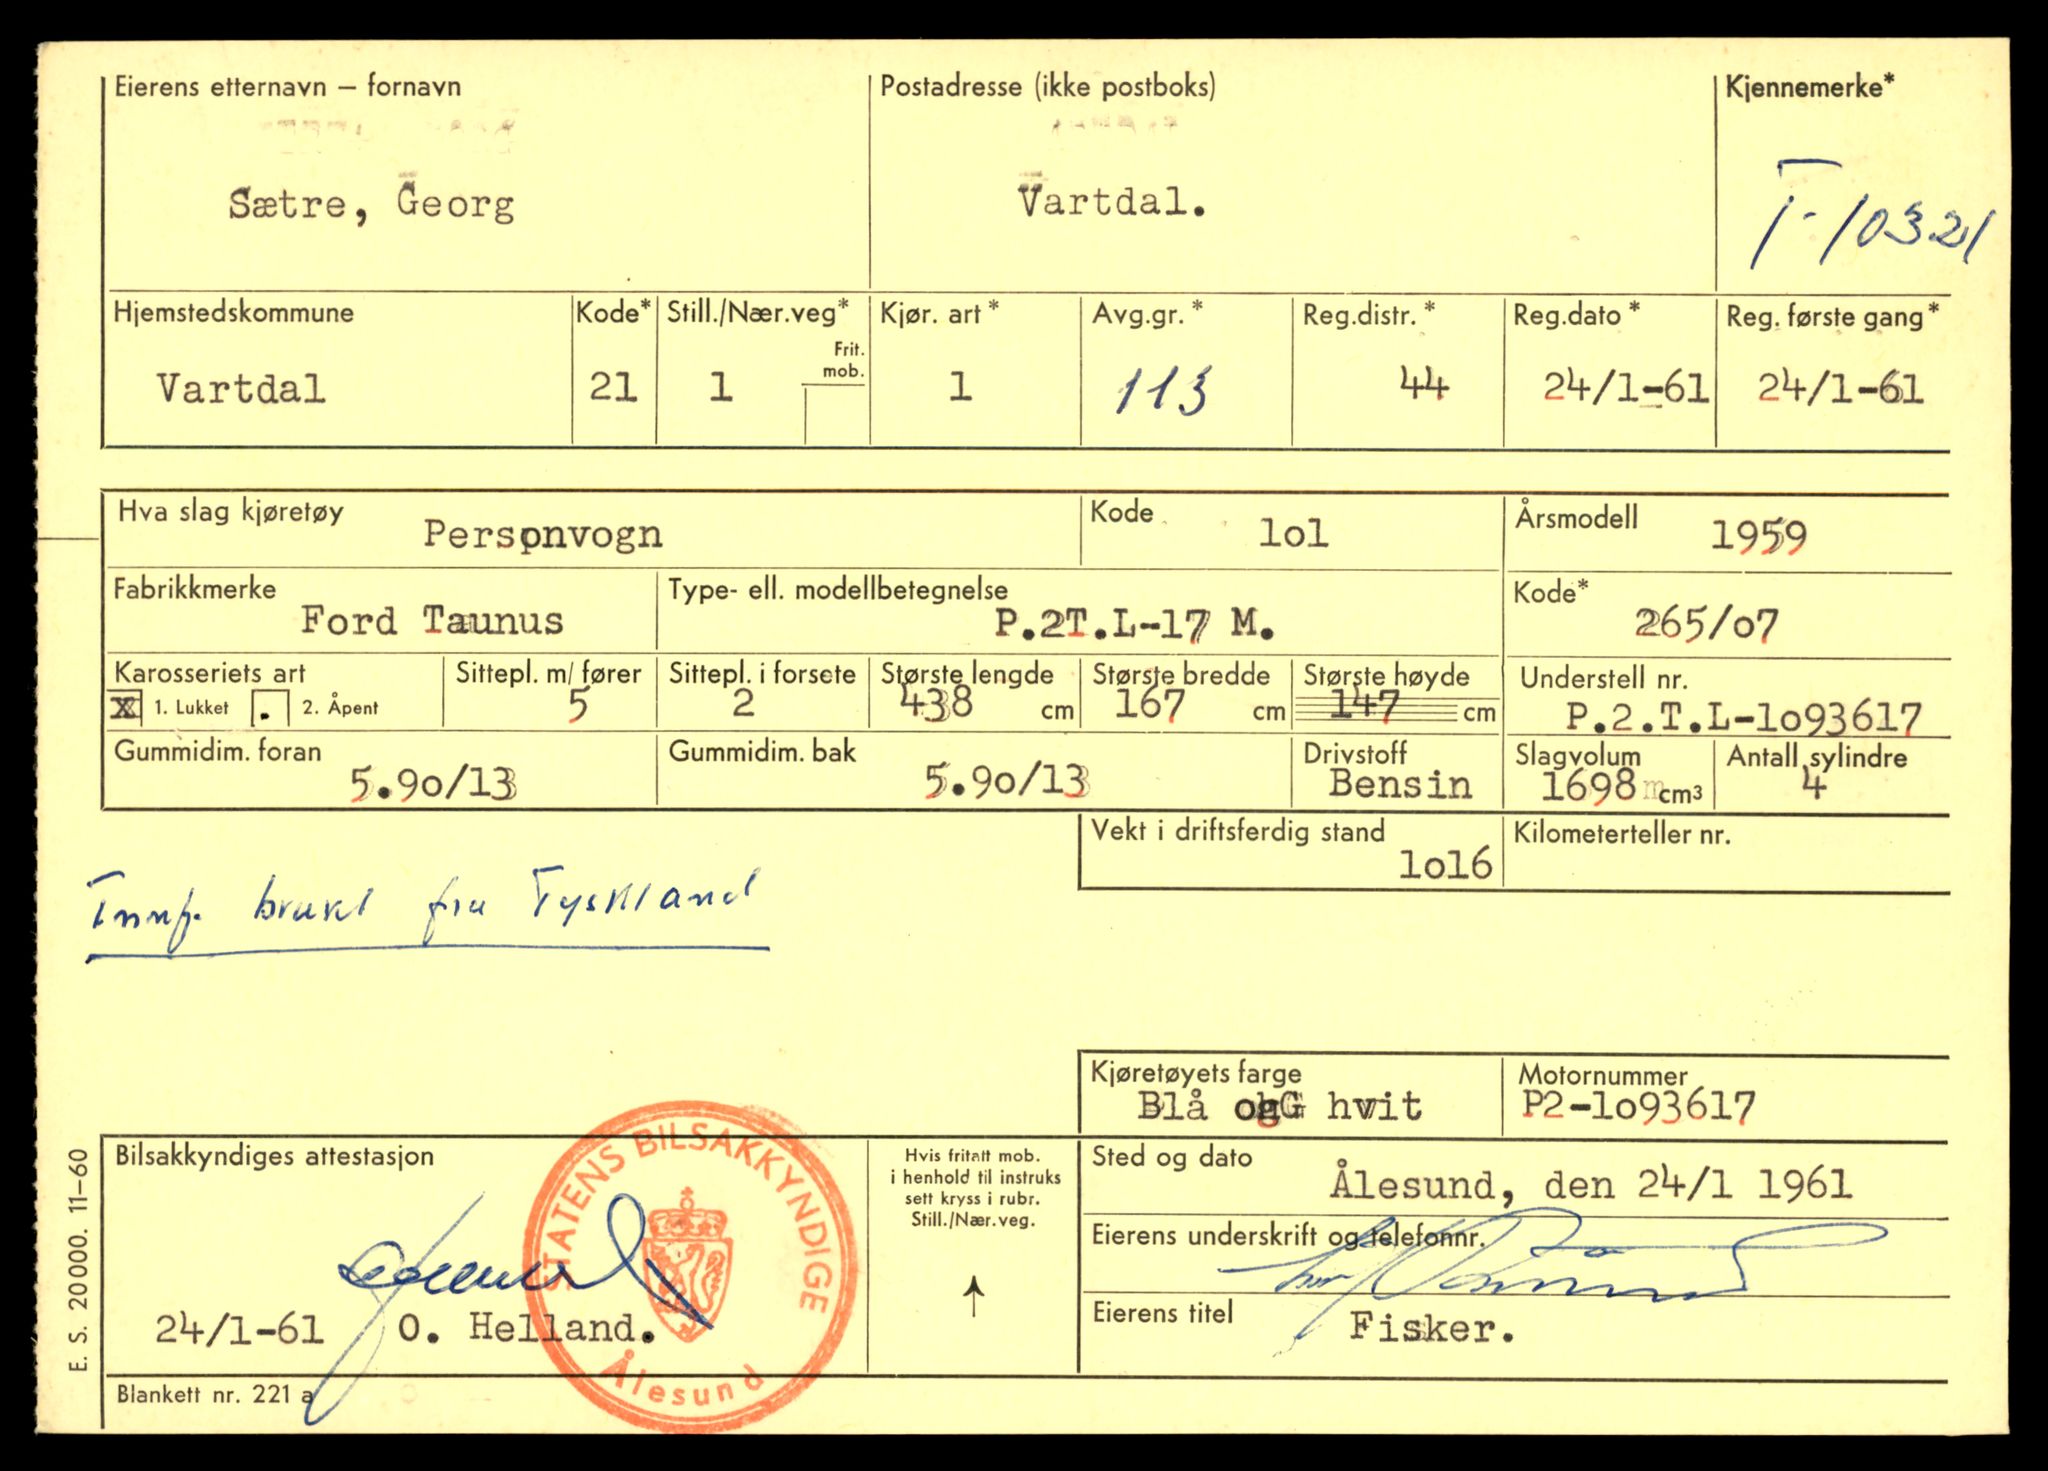 Eierens etternavn – fornavn
Sætre, Georg
Postadresse (ikke postboks)
Vartdal.
Kjennemerke*
T-10321
Hjemstedskommune
Vartdal
Kode*
21
Still./Nær.veg*
1
Frit.
mob.
Kjør. art*
1
Avg.gr.*
113
Reg.distr.*
44
Reg.dato*
24/1-61
Reg. første gang*
24/1-61
Hva slag kjøretøy
Personvogn
Kode
lol
Årsmodell
1959
Fabrikkmerke
Ford Taunus
Type- ell. modellbetegnelse
P.2T.L-17 M.
Kode*
265/o7
Karosseriets art
X 1. Lukket . 2. Åpent
Sittepl. m/ fører
5
Sittepl. i forsete
2
Største lengde
438 cm
Største bredde
167 cm
Største høyde
147 cm
Understell nr.
P.2.T.L-1o93617
Gummidim. foran
5.9o/13
Gummidim. bak
5.9o/13
Drivstoff
Bensin
Slagvolum
1698 cm³
Antall sylindre
4
Vekt i driftsferdig stand
1o16
Kilometerteller nr.
Innf. brukt fra Tyskland
Kjøretøyets farge
Blå og hvit
Motornummer
P2-1o93617
Bilsakkyndiges attestasjon
24/1-61 O. Helland.
STATENS BILSAKKYNDIGE
Ålesund
Hvis fritatt mob.
i henhold til instruks
sett kryss i rubr.
Still./Nær.veg.
Sted og dato
Ålesund, den 24/1 1961
Eierens underskrift og telefonnr.
Eierens titel
Fisker.
Blankett nr. 221 a
E. S. 20000. 11–60